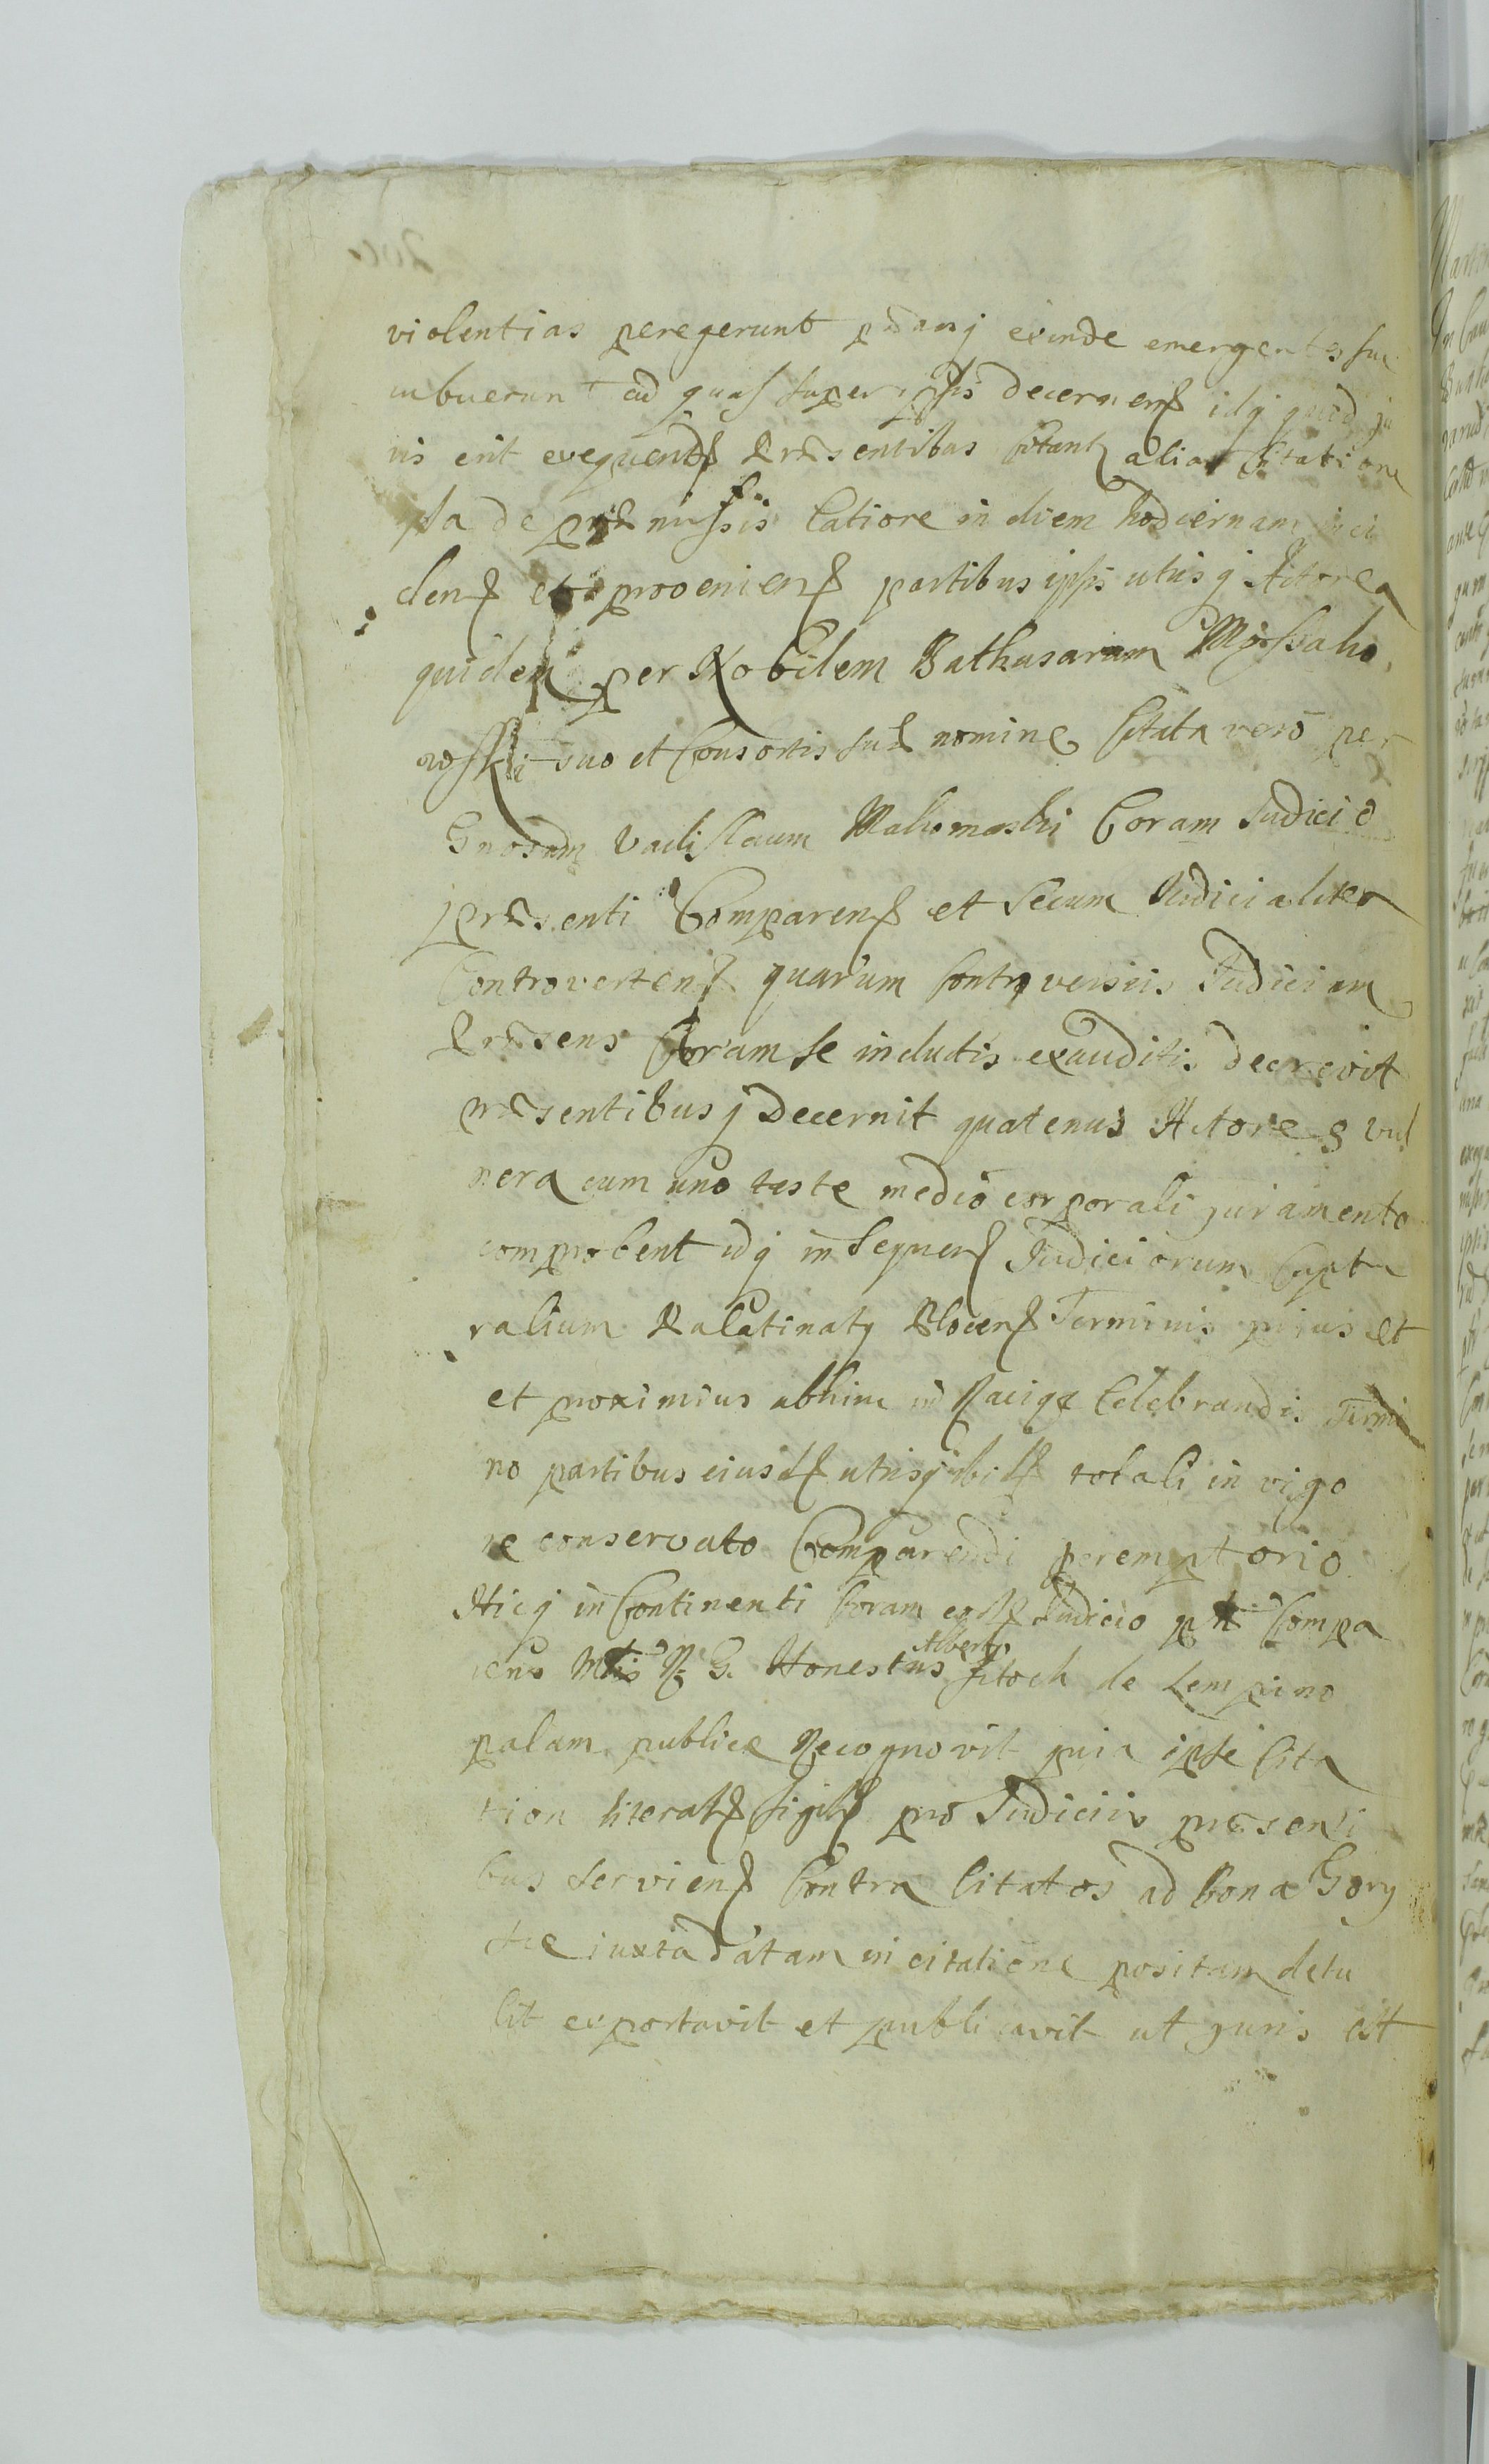 violentias peregerunt pœnasq exinde emergentes suc
cubuerunt ad quas super ipsis decernens idq quod ju
ris erit exequend Præsentibus citant alias citatione
ipsa de præmissis latiore in diem hodiernam inci
dens et proveniens partibus ipsis utrisq Actorea
quidem per Nobilem Balthasarum
suo et Consortis suæ nomine Citata vero per
Gnosum Vladislaum Malomeski Coram Judicio
præsenti Comparens et secum Judicialiter
Controvertens quarum Controversiis Judicium
Præsens Coram se inductis exauditis decrevit
præsentibusq Decernit quatenus Actores vul
nera cum uno teste medio corporali juramento
comprobent idq in sequens Judiciorum Captu
ralium Palatinatq Plocens Terminis prius et
et proximius abhinc in Raciąż Celebrandis Termi
no partibus eiusd utrisq ibid totali in vigo
re conservato Comparendi peremptorio
Hicq in Continenti Coram eod Judicio pnt Compa
rens Mtis R G. Honestus Albertq de Lempino
palam publice Recognovit quia ipse Cita
tion literal sigil pro Judiciis præsenti
bus serviens Contra Citatos ad bona Gory
iuxta datam in citatione positam detu
lit exportavit et publicavit ut juris est